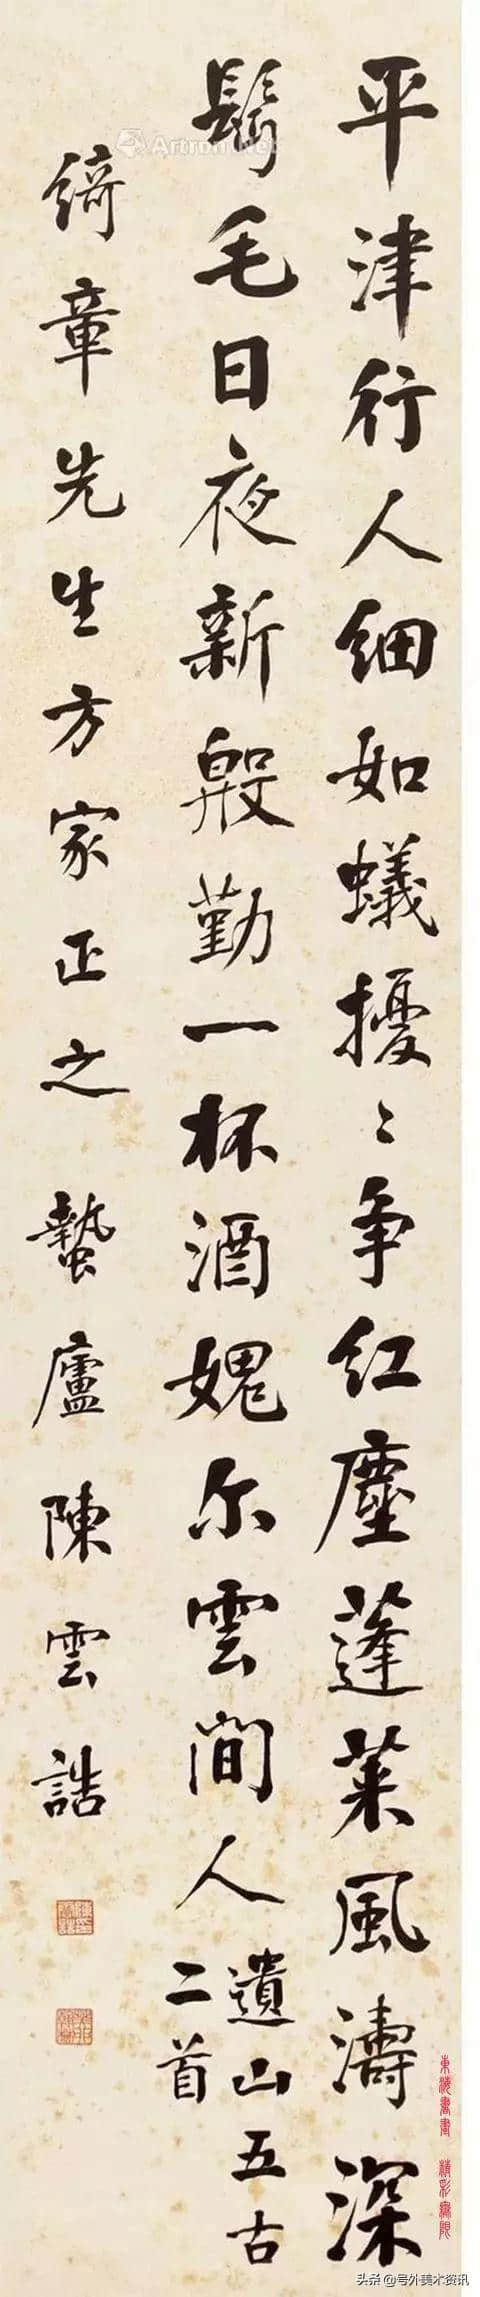 平津行人細如蟻擾〻争紅塵蓬萊風濤深
鬢毛日夜新殷勤一杯酒媿尔雲間人
遺山五古
二首
綺章先生方家正之 蟄廬陳雲誥
Artron.Net
頭条@号外美术资讯